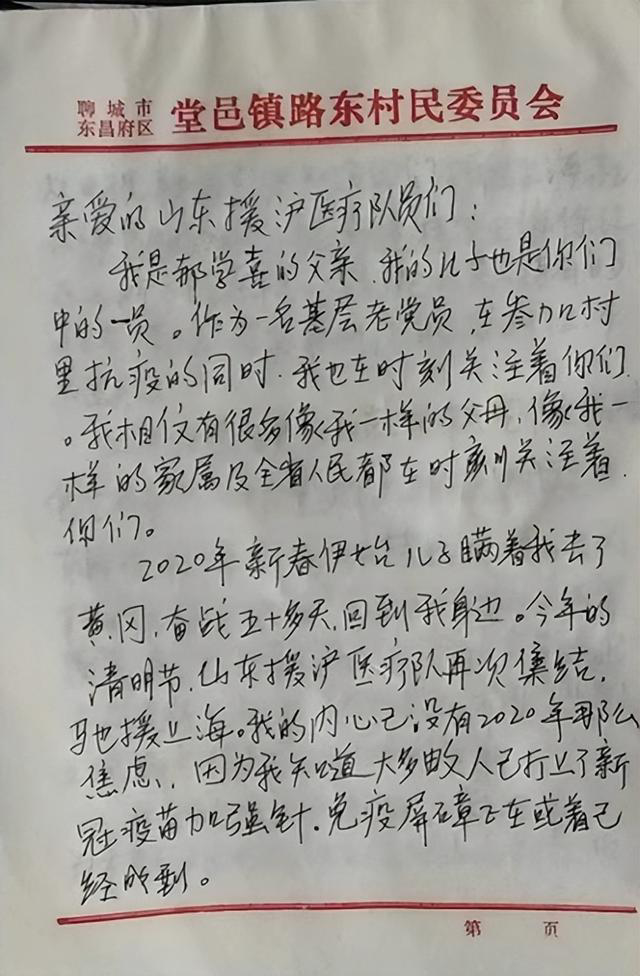 聊城市
东昌府区 堂邑镇路东村民委员会
亲爱的山东援沪医疗队员们：
我是郝学喜的父亲，我的儿子也是你们
中的一员。作为一名基层老党员，在参加村
里抗疫的同时，我也在时刻关注着你们
。我相信有很多像我一样的父母，像我一
样的家属及全省人民都在时刻关注着
你们。
2020年新春伊始儿子瞒着我去了
黄冈，奋战五十多天，回到我身边。今年的
清明节，山东援沪医疗队再次集结，
驰援上海。我的内心已没有2020年那么
焦虑，因为我知道大多数人已打上了新
冠疫苗加强针，免疫屏障正在或着已
经的到。
第 页